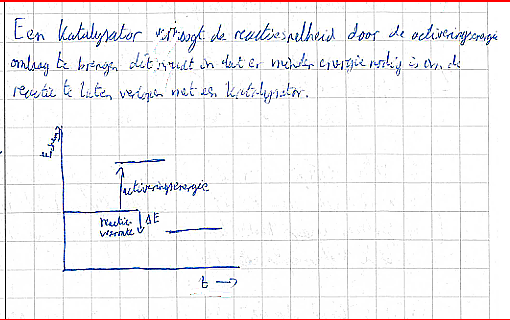 Een katalysator verhoogt de reactiesnelheid door de activeringsenergie
omlaag te brengen dit houdt in dat er minder energie nodig is om de
reactie te laten verlopen met een katalysator.
E
activeringsenergie
reactie-
warmte
ΔE
t →